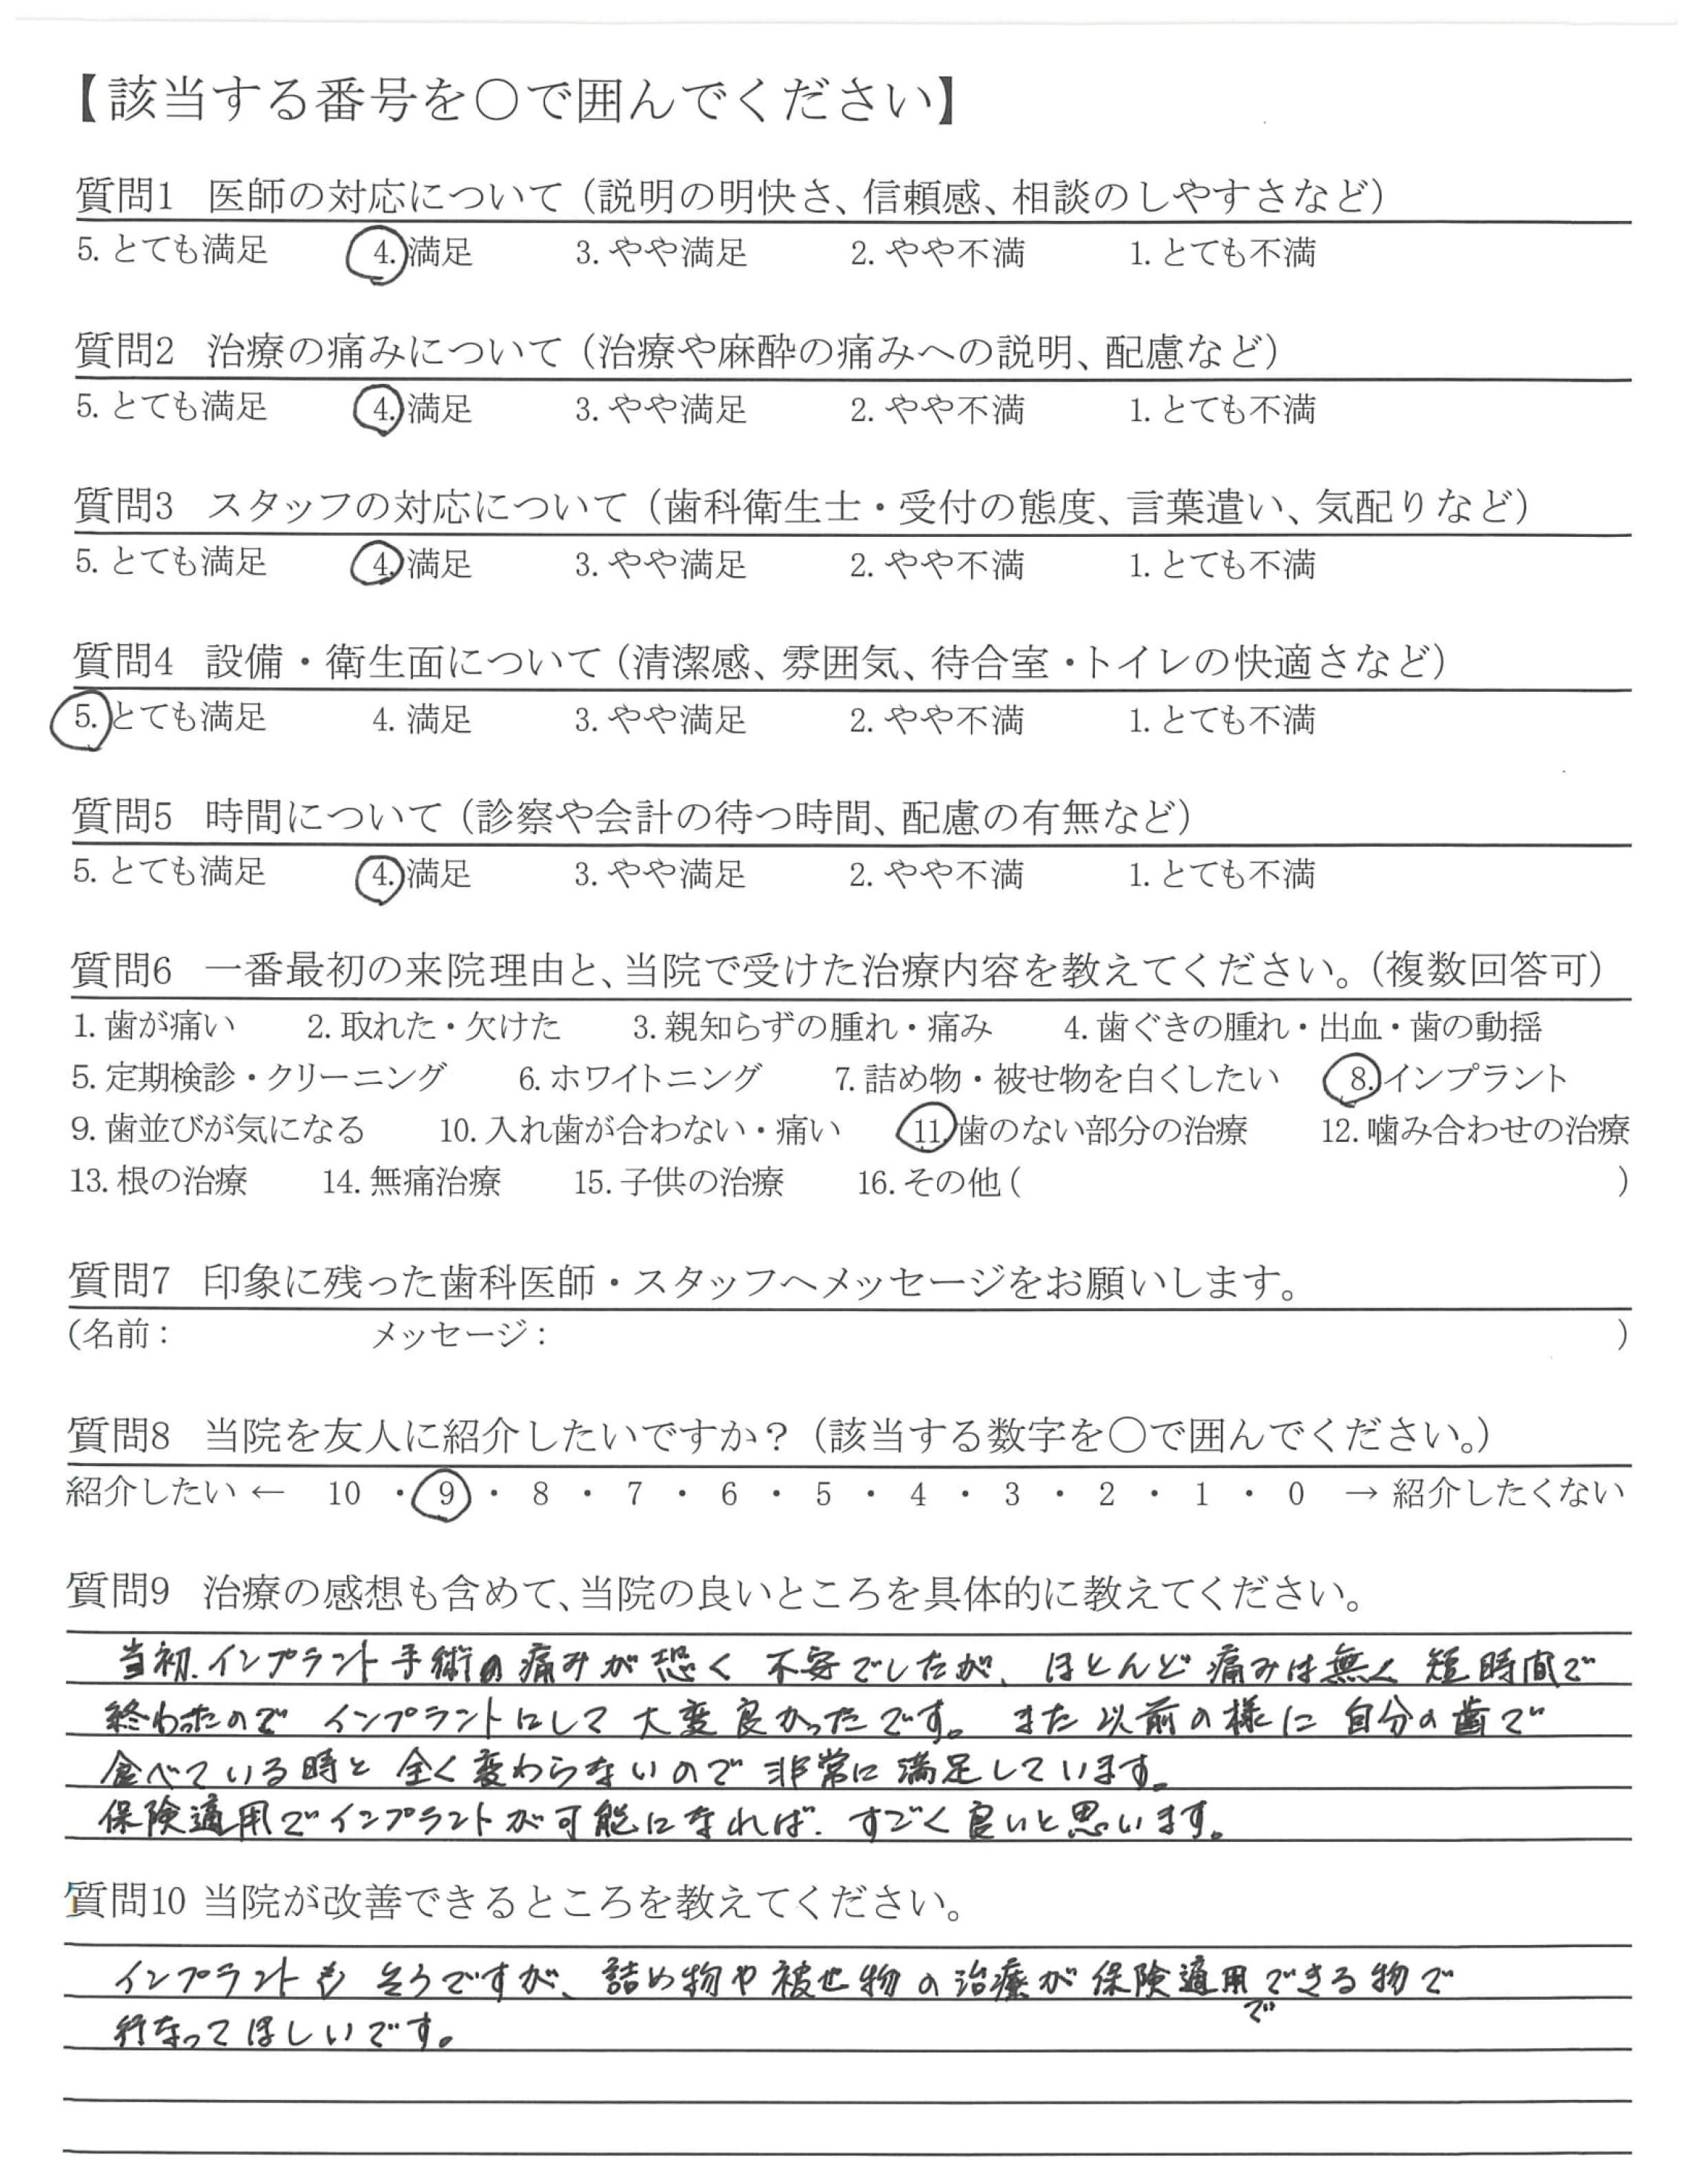 【該当する番号を○で囲んでください】
質問1 医師の対応について（説明の明快さ、信頼感、相談のしやすさなど）
5. とても満足 4. 満足 3. やや満足 2. やや不満 1. とても不満
質問2 治療の痛みについて（治療や麻酔の痛みへの説明、配慮など）
5. とても満足 4. 満足 3. やや満足 2. やや不満 1. とても不満
質問3 スタッフの対応について（歯科衛生士・受付の態度、言葉遣い、気配りなど）
5. とても満足 4. 満足 3. やや満足 2. やや不満 1. とても不満
質問4 設備・衛生面について（清潔感、雰囲気、待合室・トイレの快適さなど）
5. とても満足 4. 満足 3. やや満足 2. やや不満 1. とても不満
質問5 時間について（診察や会計の待つ時間、配慮の有無など）
5. とても満足 4. 満足 3. やや満足 2. やや不満 1. とても不満
質問6 一番最初の来院理由と、当院で受けた治療内容を教えてください。（複数回答可）
1. 歯が痛い 2. 取れた・欠けた 3. 親知らずの腫れ・痛み 4. 歯ぐきの腫れ・出血・歯の動揺
5. 定期検診・クリーニング 6. ホワイトニング 7. 詰め物・被せ物を白くしたい 8. インプラント
9. 歯並びが気になる 10. 入れ歯が合わない・痛い 11. 歯のない部分の治療 12. 噛み合わせの治療
13. 根の治療 14. 無痛治療 15. 子供の治療 16. その他（ ）
質問7 印象に残った歯科医師・スタッフへメッセージをお願いします。
（名前： メッセージ： ）
質問8 当院を友人に紹介したいですか？（該当する数字を○で囲んでください。）
紹介したい ← 10 ・ 9 ・ 8 ・ 7 ・ 6 ・ 5 ・ 4 ・ 3 ・ 2 ・ 1 ・ 0 → 紹介したくない
質問9 治療の感想も含めて、当院の良いところを具体的に教えてください。
当初、インプラント手術の痛みが恐く 不安でしたが、ほとんど痛みは無く 短時間で
終わったので インプラントにして 大変良かったです。また以前の様に 自分の歯で
食べている時と 全く変わらないので 非常に満足しています。
保険適用でインプラントが可能になれば、すごく良いと思います。
質問10 当院が改善できるところを教えてください。
インプラントも そうですが、詰め物や被せ物の治療が保険適用できる物で
で
行なってほしいです。